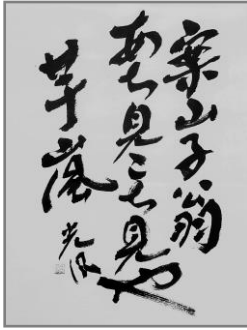 案山子翁
あち見こち見や
芋嵐